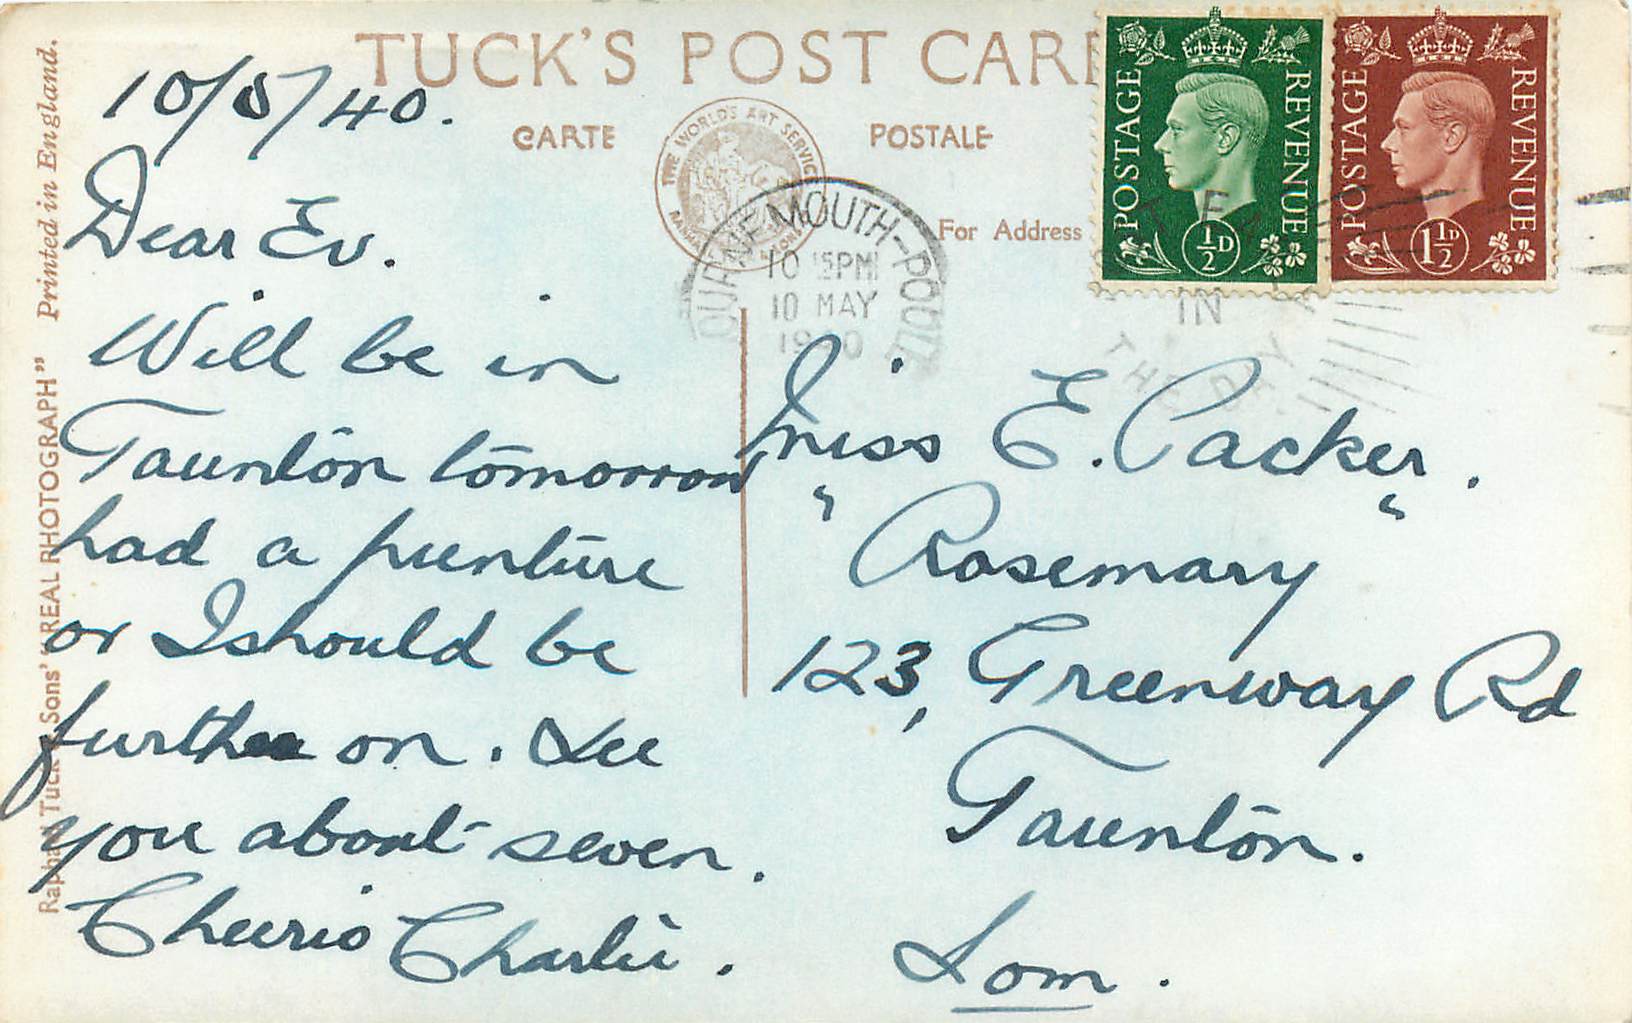 TUCK'S POST CAR
CARTE POSTALE
THE WORLD'S ART SERVICE
For Address
POSTAGE REVENUE
½D
POSTAGE REVENUE
1½D
OURNEMOUTH-POOL
10 15PM
10 MAY
19 0
IN
THE
10/5/40.
Dear Ev.
Will be in
Taunton tomorrow
had a punture
or I should be
further on. See
you about seven.
Cheerio Charlie.
Miss E. Packer.
"Rosemary"
123, Greenway Rd
Taunton.
Som.
Raphael Tuck & Sons' "REAL PHOTOGRAPH" Printed in England.